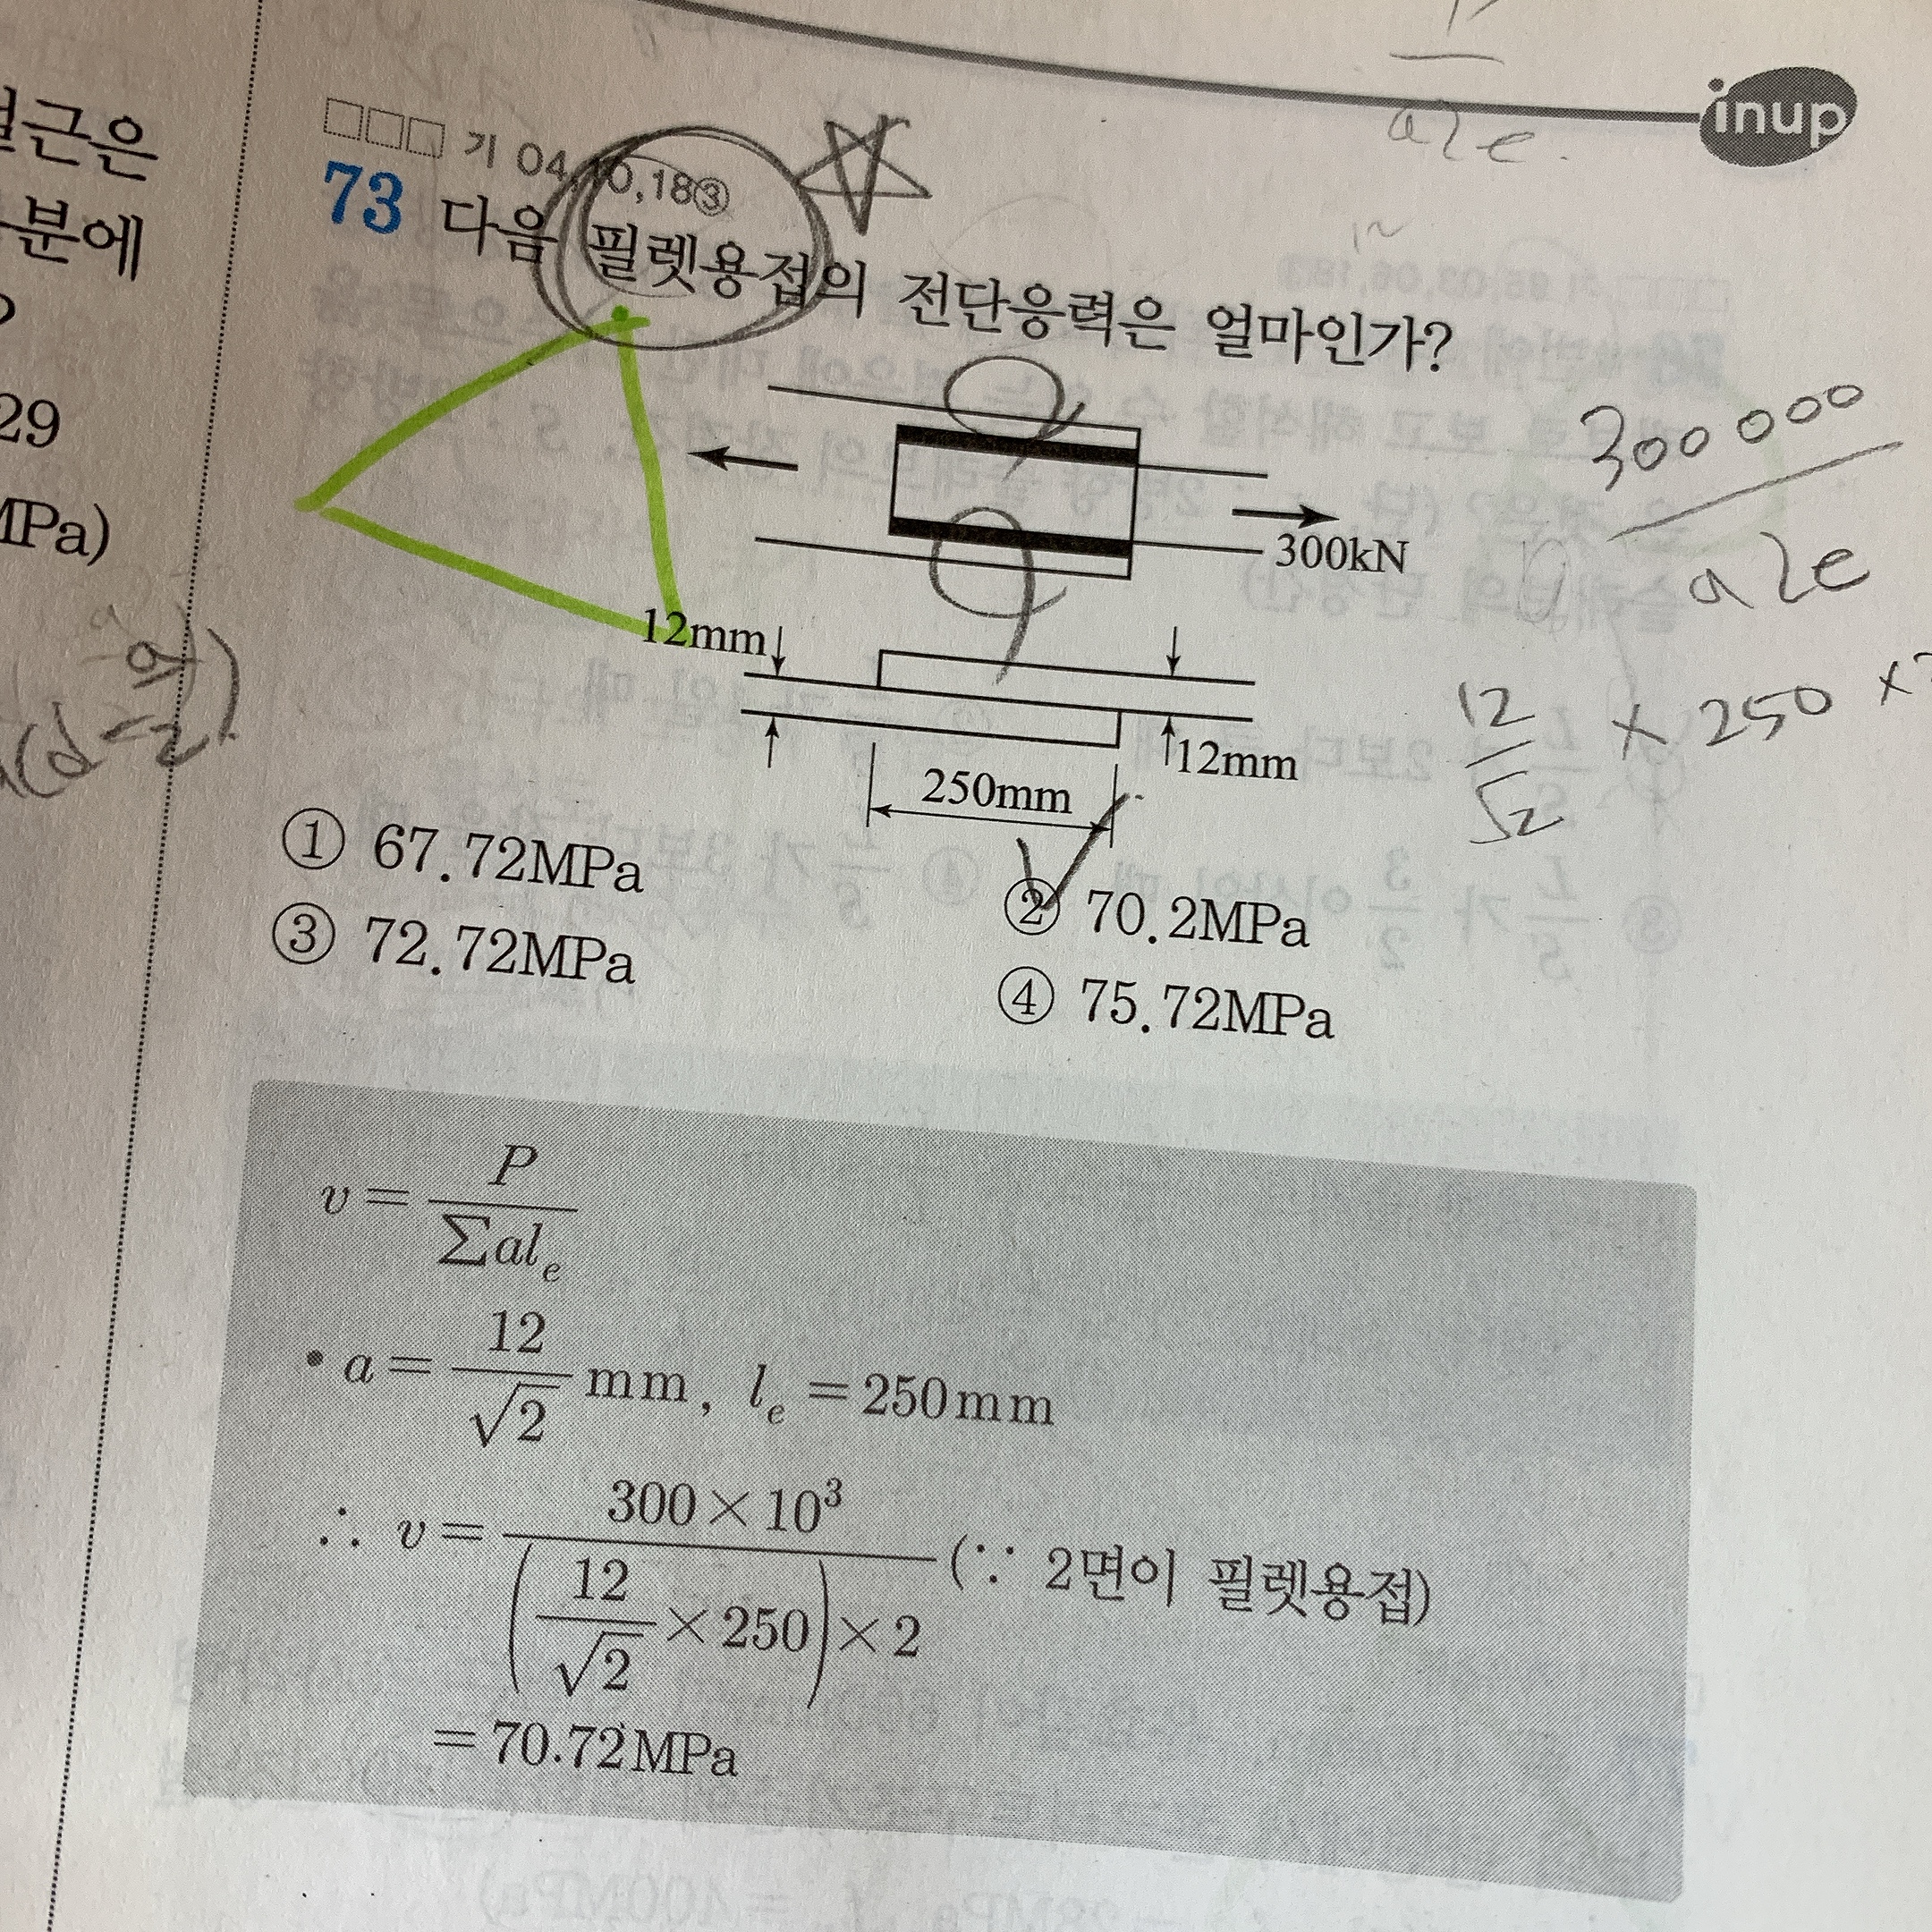 inup
a l e.
철근은
분에
29
MPa)
□□□ 기 04,10,18③
73 다음 필렛용접의 전단응력은 얼마인가?
300kN
12mm
12mm
250mm
300000
a l e
12/√2 × 250 ×
① 67.72MPa
② 70.2MPa
③ 72.72MPa
④ 75.72MPa
v = P/Σal_e
• a = 12/√2 mm, l_e = 250mm
∴ v = 300×10³/((12/√2×250)×2) (∵ 2면이 필렛용접)
= 70.72MPa